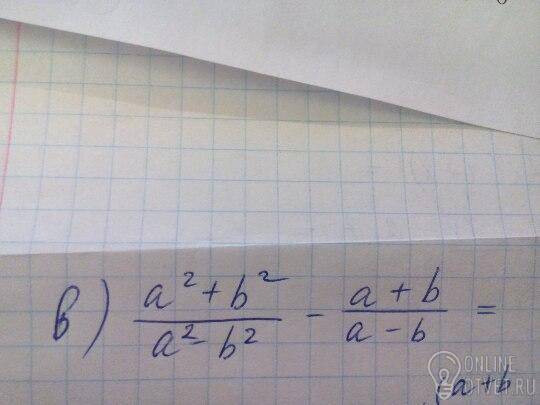 в) (a² + b²)/(a² - b²) - (a + b)/(a - b) =
(a + b
ONLINE
OTVET.RU